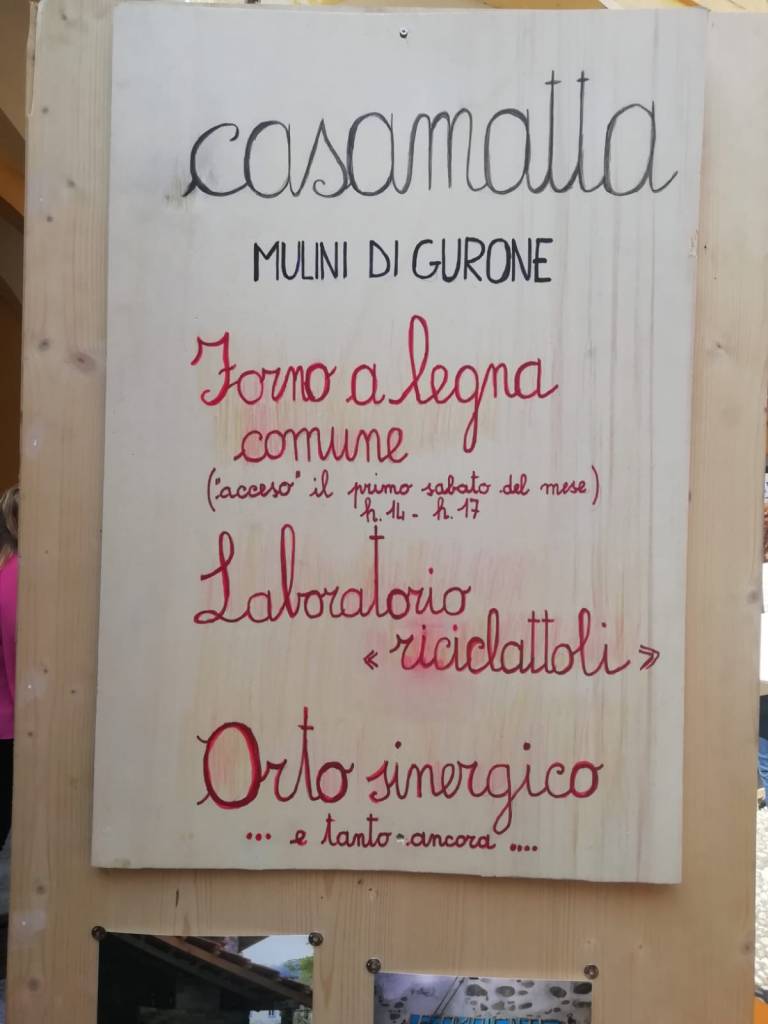 casamatta
MULINI DI GURONE
Forno a legna
comune
("acceso" il primo sabato del mese)
h.14 - h.17
Laboratorio
« riciclattoli »
Orto sinergico
... e tanto ancora ....